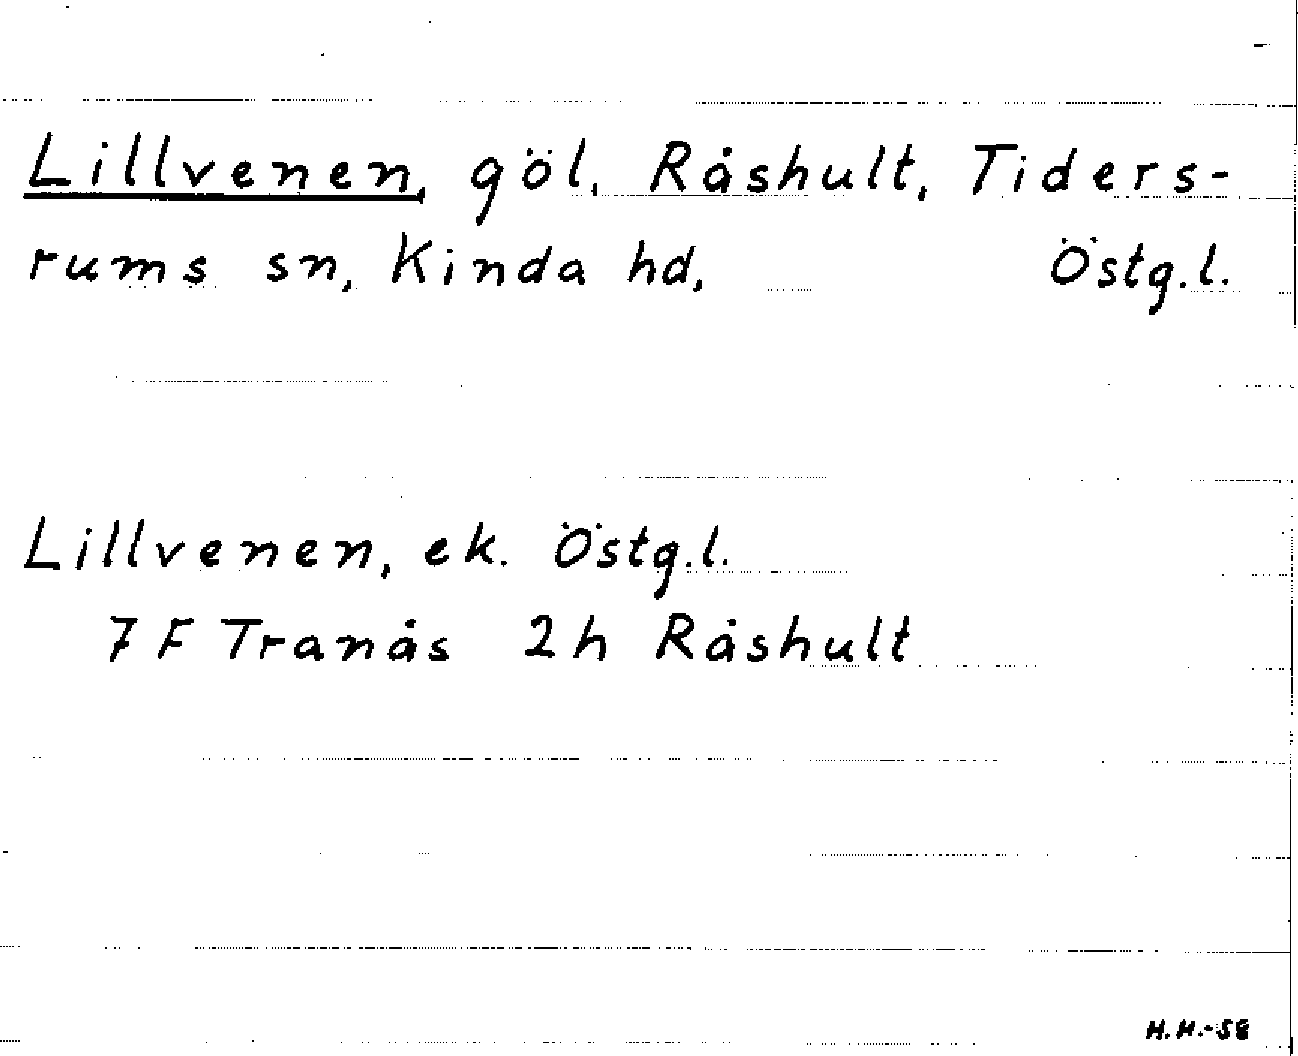 Lillvenen, göl, Råshult, Tiders-
rums sn, Kinda hd, Östg.l.
Lillvenen, ek. Östg.l.
7 F Tranås 2h Råshult
H.H.-58